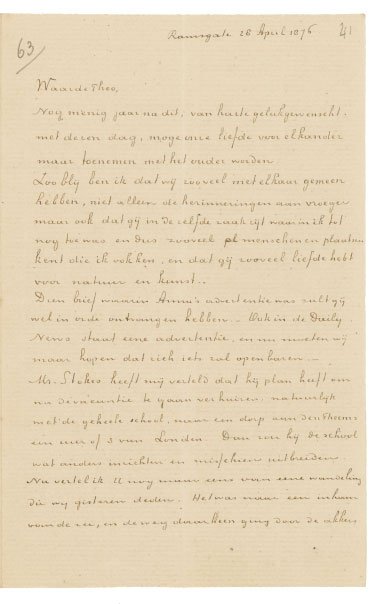 63
Ramsgate 28 April 1876
Waarde Theo,
Nog menig jaar na dit, van harte gelukgewenscht
met dezen dag, moge onze liefde voor elkander
maar toenemen met het ouder worden.
Zoo bly ben ik dat wij zooveel met elkaar gemeen
hebben, niet alleen de herinneringen aan vroeger
maar ook dat gij in dezelfde zaak zijt waarin ik tot
nog toe was en dus zooveel menschen en plaatsen
kent die ik ook ken, en dat gij zooveel liefde hebt
voor natuur en kunst..
Dien brief waarin Anna's advertentie was zult gij
wel in orde ontvangen hebben. – Ook in de Daily
News staat eene advertentie, en nu moeten wij
maar hopen dat zich iets zal openbaren. –
Mr. Stokes heeft mij verteld dat hij plan heeft om
na de vacantie te gaan verhuizen, natuurlijk
met de geheele school, naar een dorp aan den Theems
een uur of 3 van Londen. Dan zou hij de school
wat anders inrichten en misschien uitbreiden.
Nu vertel ik U nog maar eens van eene wandeling
die wij gisteren deden. Het was naar een inham
van de zee, en de weg daarheen ging door de akkers